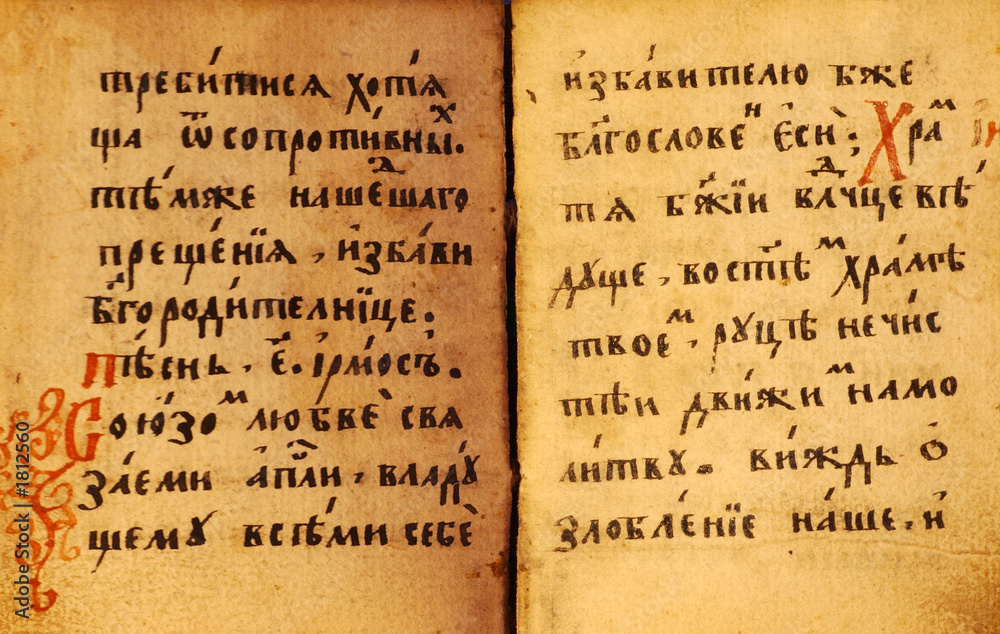 треби́тися хотѧ́
ща ѿ сопроти́вныⷯ.
тѣ́мже наше́дшаго
преще́нїѧ, и҆зба́ви
бг҃ороди́телнїце.
Пѣ́снь. є҃. і҆рмо́съ.
Сою́зоⷨ любвѐ свѧ
за́еми а҆пⷭ҇ли, владꙋ́
щемꙋ всѣ́ми себѐ
и҆зба́вителю бж҃е
блг҃ословеⷩ҇ є҆сѝ: Храⷨ
тѧ бж҃їи влⷣчце всѣ́
дꙋше, во свтѣⷨ хра́мѣ
твоеⷨ, рꙋцѣ нечи́с
тѣи дви́жиⷨ на мо
ли́твꙋ. ви́ждь ѻ҆
злобле́нїе на́ше. и҆
Adobe Stock | #1812560